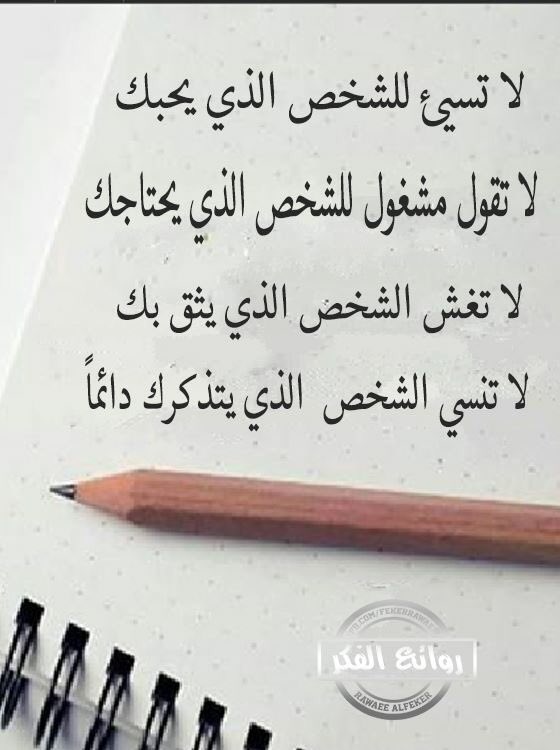 لا تسيئ للشخص الذي يحبك
لا تقول مشغول للشخص الذي يحتاجك
لا تغش الشخص الذي يثق بك
لا تنسي الشخص الذي يتذكرك دائماً
FB.COM/FEKERRAWAEE
روائع الفكر
RAWAEE ALFEKER